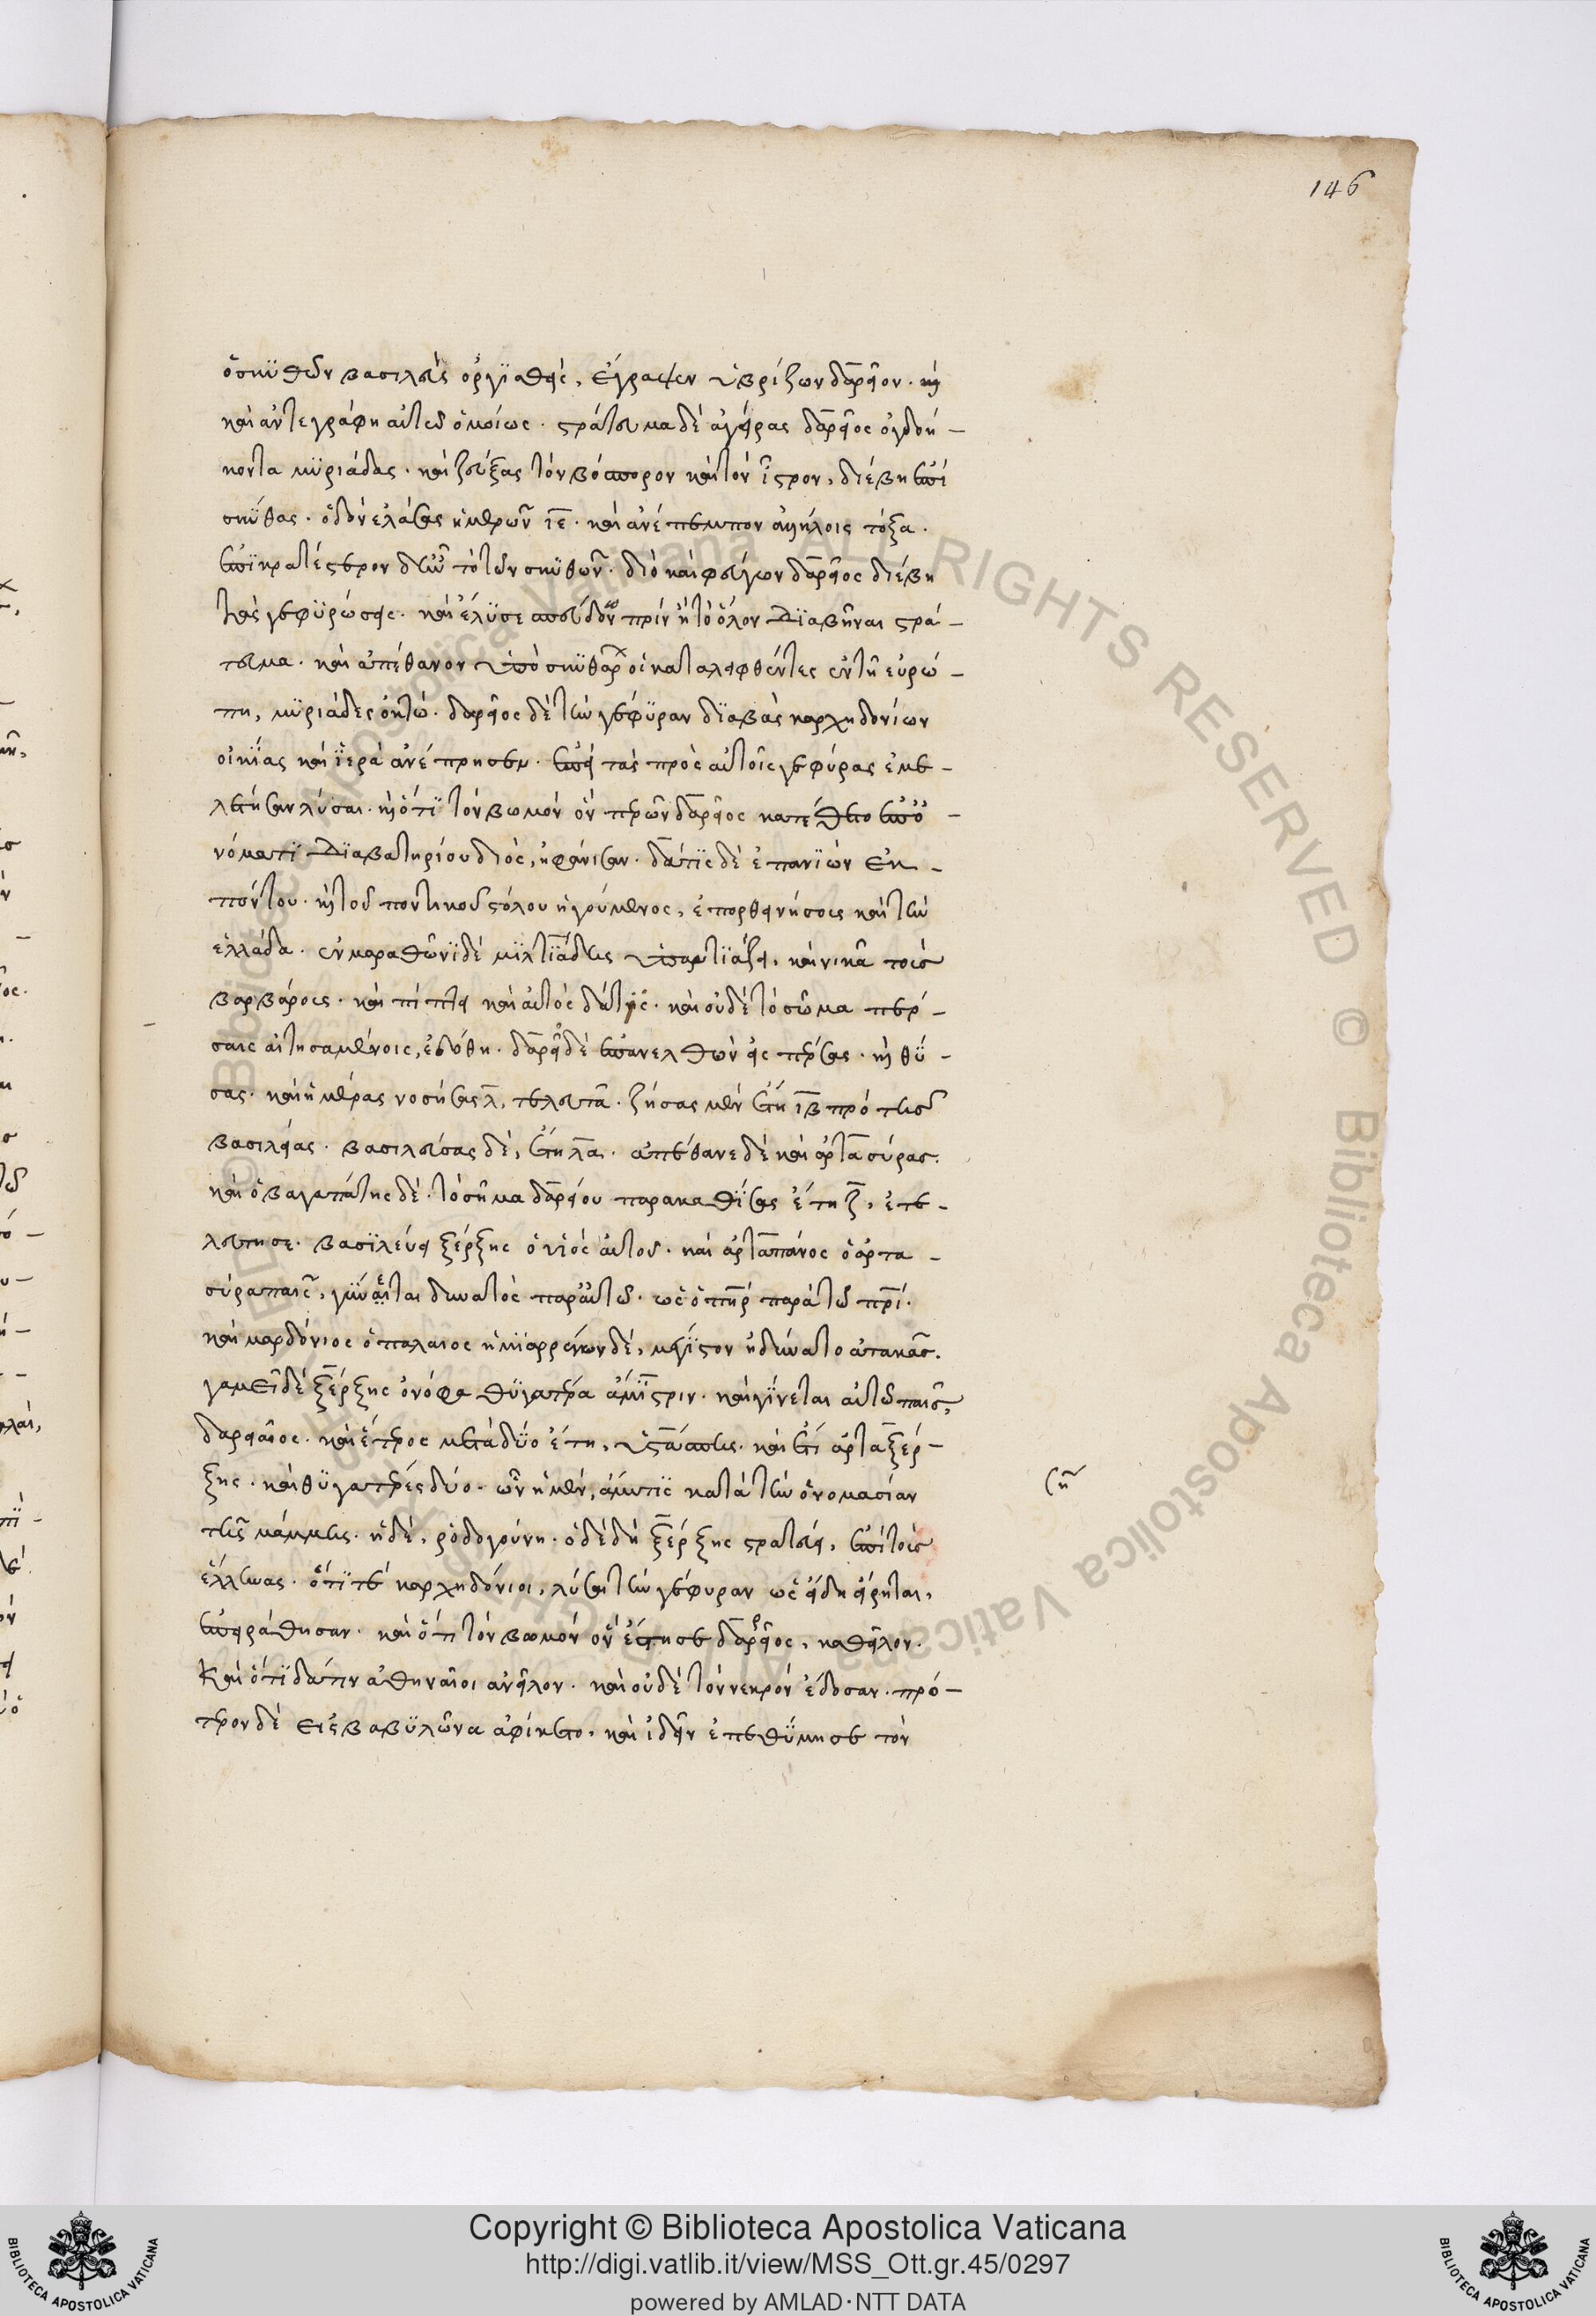 146
ὁ σκϋθῶν βασιλεὺς ὀργϊσθεὶς, ἔγραψεν ὑβρίζων δαρεῖον. καὶ
καὶ ἀντεγράφη αὐτῶ ὁμοίως. στράτευμα δὲ ἀγείρας δαρεῖος ὀγδοή-
κοντα μϋριάδας. καὶ ζεύξας τὸν βόσπορον καὶ τὸν ἴστρον, διέβη ἐπὶ
σκΰθας. ὁδὸν ἐλάσας ἡμερῶν ιε. καὶ ἀνέπεμπον ἀλλήλοις τόξα.
ἐπϊκρατέστερον δ' ἦν τὸ τῶν σκϋθῶν. διὸ καὶ φεύγων δαρεῖος διέβη
τὰς γεφϋρώσεις. καὶ ἔλϋσε σπεύδων πρὶν ἢ τὸ ὅλον δϊαβῆναι στρά-
τευμα. καὶ ἀπέθανον ὑπὸ σκϋθάρχου οἱ καταλειφθέντες ἐν τῆ εὐρώ-
πη, μϋριάδες ὀκτώ. δαρεῖος δὲ τὴν γέφϋραν δϊαβὰς καρχηδονίων
οἰκΐας καὶ ϊερὰ ἀνέπρησεν. ἐπεὶ τὰς πρὸς αὐτοῖς γεφύρας ἐμε-
λέτησαν λύσαι. καὶ ὅτϊ τὸν βωμὸν ὃν περῶν δαρεῖος κατέθετο ἐπ' ὀ
νόματϊ δϊαβατηρίου διὸς, ἠφάνισαν. δάτϊς δὲ ἐπανϊὼν ἐκ-
πόντου. καὶ τοῦ ποντικοῦ στόλου ἡγούμενος, ἐπόρθει νήσους καὶ τὴν
ἑλλάδα. ἐν μαραθῶνϊ δὲ μϊλτϊάδης ὑπαντϊάζει, καὶ νικᾶ τοὺς
βαρβάρους. καὶ πίπτει καὶ αὐτὸς δάτϊς. καὶ οὐδὲ τὸ σῶμα πέρ-
σαις αἰτησαμένοις, ἐδόθη. δαρεῖος δὲ ἐπανελθὼν εἰς πέρσας. καὶ θΰ-
σας. καὶ ἡμέρας νοσήσας λ, τελευτᾶ. ζήσας μὲν ἔτη ιβ πρὸ τῆς
βασιλείας. βασιλεύσας δὲ, ἔτη λα. ἀπέθανε δὲ καὶ ἀρτασύρας.
καὶ ὁ βαγαπάτης δὲ. τὸ σῆμα δαρείου παρακαθΐσας ἔτη ζ, ἐτε-
λεύτησε. βασϊλεύει ξέρξης ὁ υἱὸς αὐτοῦ. καὶ ἀρταπάνος ὁ ἀρτα-
σύρα παῖς, γΐνεται δυνατὸς παρ' αὐτῶ. ὡς ὁ πατὴρ παρὰ τῶ πατρί.
καὶ μαρδόνιος ὁ παλαιος ἡμϊαρρένων δὲ, μέγϊστον ἠδύνατο ἀτακάς.
γαμεῖ δὲ ξέρξης ὀνόφα θϋγατέρα ἀμῖστριν. καὶ γΐνεται αὐτῶ παῖς,
δαρειαῖος. καὶ ἕτερος μετὰ δΰο ἔτη, ὑστάσπης. καὶ ἔτι ἀρταξέρ-
ξης. καὶ θϋγατέρες δύο. ὧν ἡ μὲν, ἀμυτϊς κατὰ τὴν ὀνομασίαν
τῆς μάμμης. ἡ δὲ, ῥοδογούνη. ὁ δὲ δὴ ξέρξης στρατεύει, ἐπὶ τοὺς
ἕλληνας. ὅτϊ τέ καρχηδόνιοι, λύσαι τὴν γέφυραν ὡς ἤδη εἴρηται,
ἐπειράθησαν. καὶ ὅτι τὸν βωμὸν ὃν ἔστησε δαρεῖος, καθεῖλον.
καὶ ὅτϊ δάτιν ἀθηναῖοι ἀνεῖλον. καὶ οὐδὲ τὸν νεκρὸν ἔδοσαν. πρό-
τερον δὲ εἰς βαβϋλῶνα ἀφίκετο, καὶ ἰδεῖν ἐπεθΰμησε τὸν
Copyright © Biblioteca Apostolica Vaticana
http://digi.vatlib.it/view/MSS_Ott.gr.45/0297
powered by AMLAD·NTT DATA
BIBLIOTECA APOSTOLICA VATICANA
BIBLIOTECA APOSTOLICA VATICANA
© Biblioteca Apostolica Vaticana ALL RIGHTS RESERVED